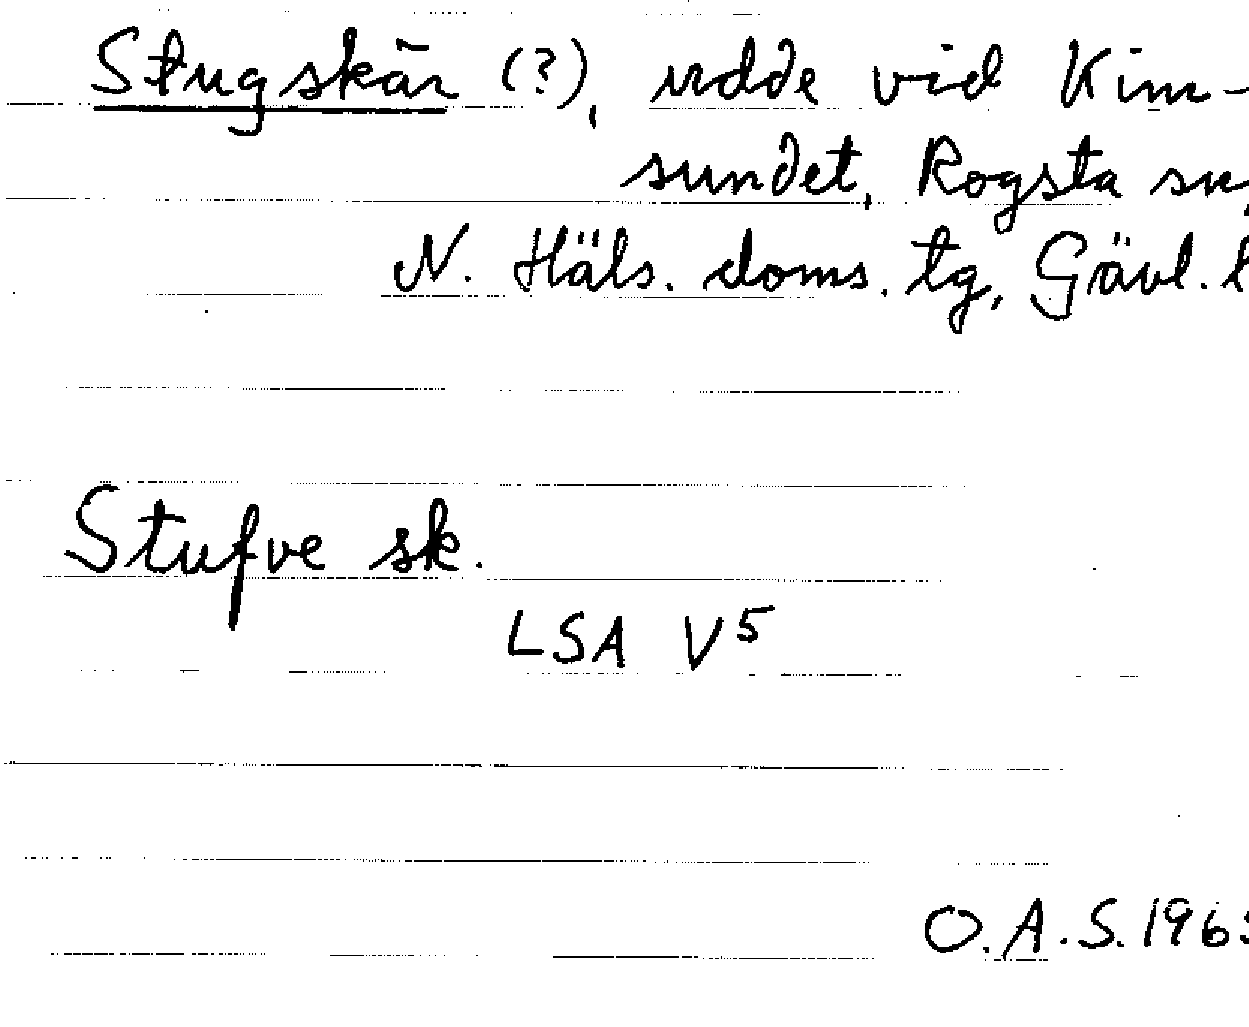 Stugskär (?), udde vid Kim-
sundet, Rogsta sn,
N. Häls. doms. tg, Gävl. l
Stufve sk.
LSA V5
O.A.S. 196